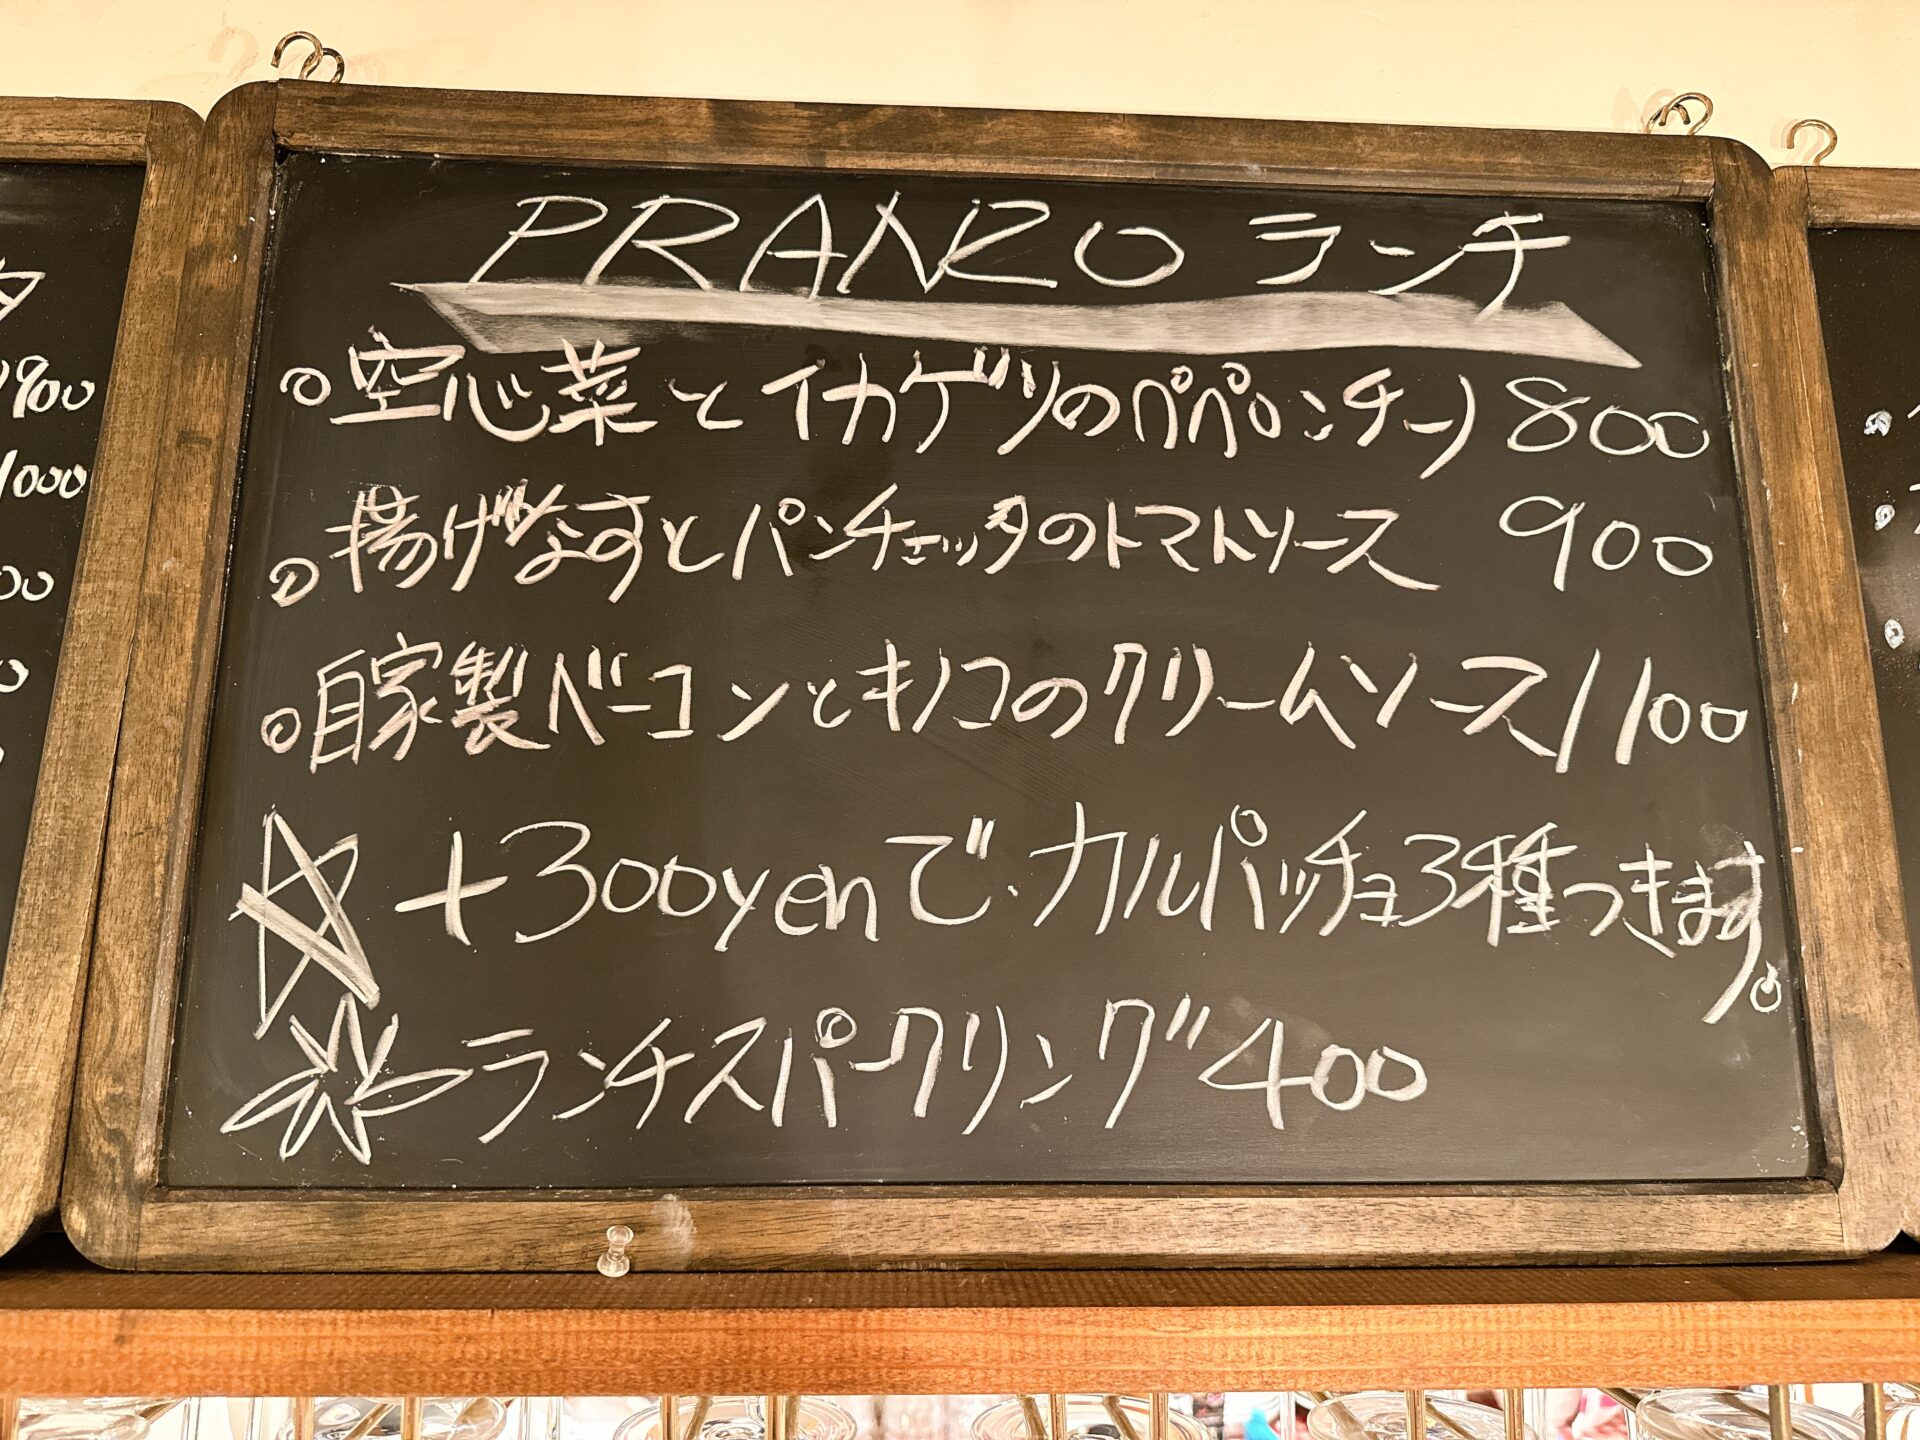 PRANZO ランチ
空心菜とイカゲソのペペロンチーノ 800
揚げなすとパンチェッタのトマトソース 900
自家製ベーコンとキノコのクリームソース 1100
☆ +300yenで、カルパッチョ3種つきます。
ランチスパークリング 400
900
1000
00